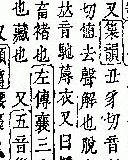 又集韻丑豸切音
切𠀤去聲解也脫
𠀤音馳蓐衣又曰
畜褚也左傳襄三
也藏也 又五音